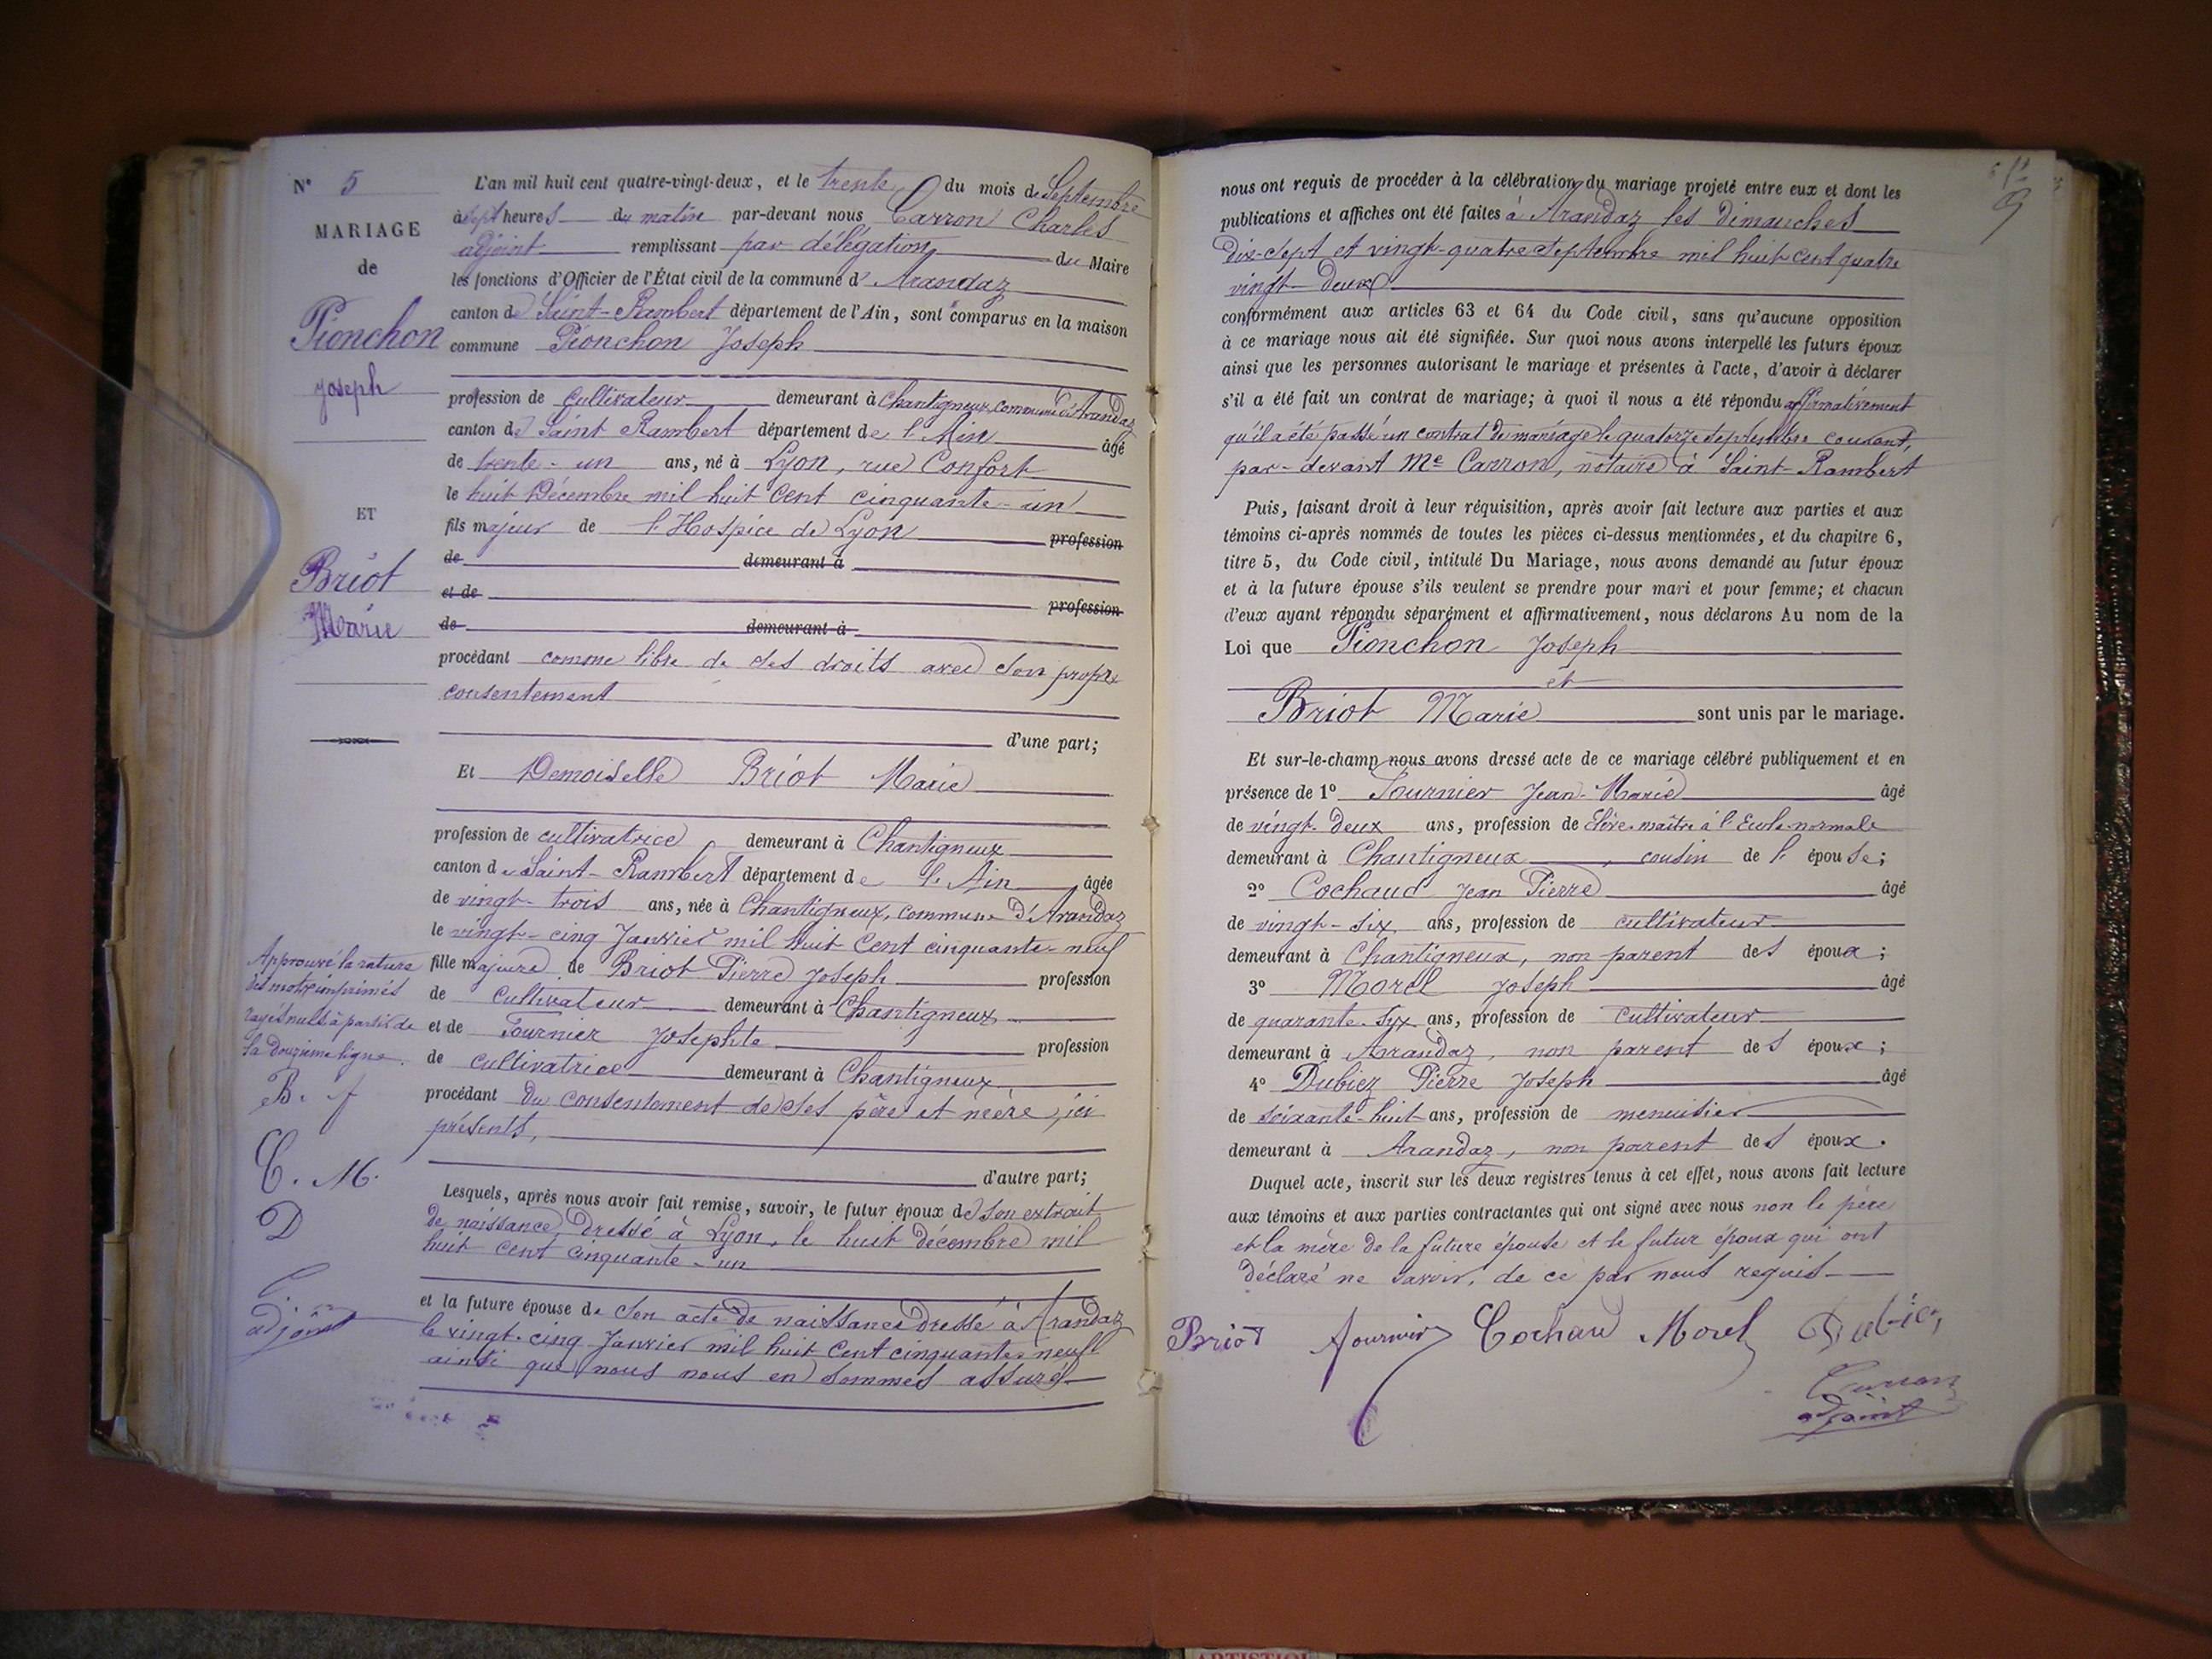 N° 5
MARIAGE
de
Pionchon
Joseph
ET
Briot
Marie
Approuvé la rature
des mots imprimés
rayés nuls à partir de
la douzième ligne.
B. f
C. M.
D
C.
adjoint
L'an mil huit cent quatre-vingt-deux, et le trente du mois de Septembre
à sept heures du matin par-devant nous Carron Charles
adjoint remplissant par délégation du Maire
les fonctions d'Officier de l'État civil de la commune d'Arandaz
canton de Saint-Rambert département de l'Ain, sont comparus en la maison
commune Pionchon Joseph
profession de cultivateur demeurant à Chantigneux, commune d'Arandaz
canton de Saint Rambert département de l'Ain âgé
de trente-un ans, né à Lyon, rue Confort
le huit Décembre mil huit cent cinquante-un
fils majeur de l'Hospice de Lyon profession
de demeurant à
et de profession
de demeurant à
procédant comme libre de ses droits avec son propre
consentement
d'une part;
Et Demoiselle Briot Marie
profession de cultivatrice demeurant à Chantigneux
canton de Saint-Rambert département de l'Ain âgée
de vingt-trois ans, née à Chantigneux, commune d'Arandaz
le vingt-cinq Janvier mil huit cent cinquante-neuf
fille majeure de Briot Pierre Joseph profession
de cultivateur demeurant à Chantigneux
et de Fournier Josephte profession
de cultivatrice demeurant à Chantigneux
procédant du consentement de ses père et mère, ici
présents,
d'autre part;
Lesquels, après nous avoir fait remise, savoir, le futur époux de son extrait
de naissance, dressé à Lyon, le huit décembre mil
huit cent cinquante-un
et la future épouse de son acte de naissance dressé à Arandaz
le vingt-cinq Janvier mil huit cent cinquante-neuf
ainsi que nous nous en sommes assuré
nous ont requis de procéder à la célébration du mariage projeté entre eux et dont les
publications et affiches ont été faites à Arandaz les dimanches
dix-sept et vingt-quatre septembre mil huit cent quatre
vingt-deux
conformément aux articles 63 et 64 du Code civil, sans qu'aucune opposition
à ce mariage nous ait été signifiée. Sur quoi nous avons interpellé les futurs époux
ainsi que les personnes autorisant le mariage et présentes à l'acte, d'avoir à déclarer
s'il a été fait un contrat de mariage; à quoi il nous a été répondu affirmativement
qu'il a été passé un contrat de mariage le quatorze septembre courant,
par-devant Me Carron, notaire à Saint-Rambert
Puis, faisant droit à leur réquisition, après avoir fait lecture aux parties et aux
témoins ci-après nommés de toutes les pièces ci-dessus mentionnées, et du chapitre 6,
titre 5, du Code civil, intitulé Du Mariage, nous avons demandé au futur époux
et à la future épouse s'ils veulent se prendre pour mari et pour femme; et chacun
d'eux ayant répondu séparément et affirmativement, nous déclarons Au nom de la
Loi que Pionchon Joseph
et
Briot Marie sont unis par le mariage.
Et sur-le-champ nous avons dressé acte de ce mariage célébré publiquement et en
présence de 1° Fournier Jean-Marie âgé
de vingt-deux ans, profession de Elève-maître à l'Ecole normale
demeurant à Chantigneux, cousin de l'épouse;
2° Cochaud Jean Pierre âgé
de vingt-six ans, profession de cultivateur
demeurant à Chantigneux, non parent des époux;
3° Morel Joseph âgé
de quarante-six ans, profession de cultivateur
demeurant à Arandaz, non parent des époux;
4° Dubiez Pierre Joseph âgé
de soixante-huit ans, profession de menuisier
demeurant à Arandaz, non parent des époux.
Duquel acte, inscrit sur les deux registres tenus à cet effet, nous avons fait lecture
aux témoins et aux parties contractantes qui ont signé avec nous non le père
et la mère de la future épouse et le futur époux qui ont
déclaré ne savoir, de ce par nous requis
Briot fournier Cochaud Morel Dubiez
Carron
adjoint